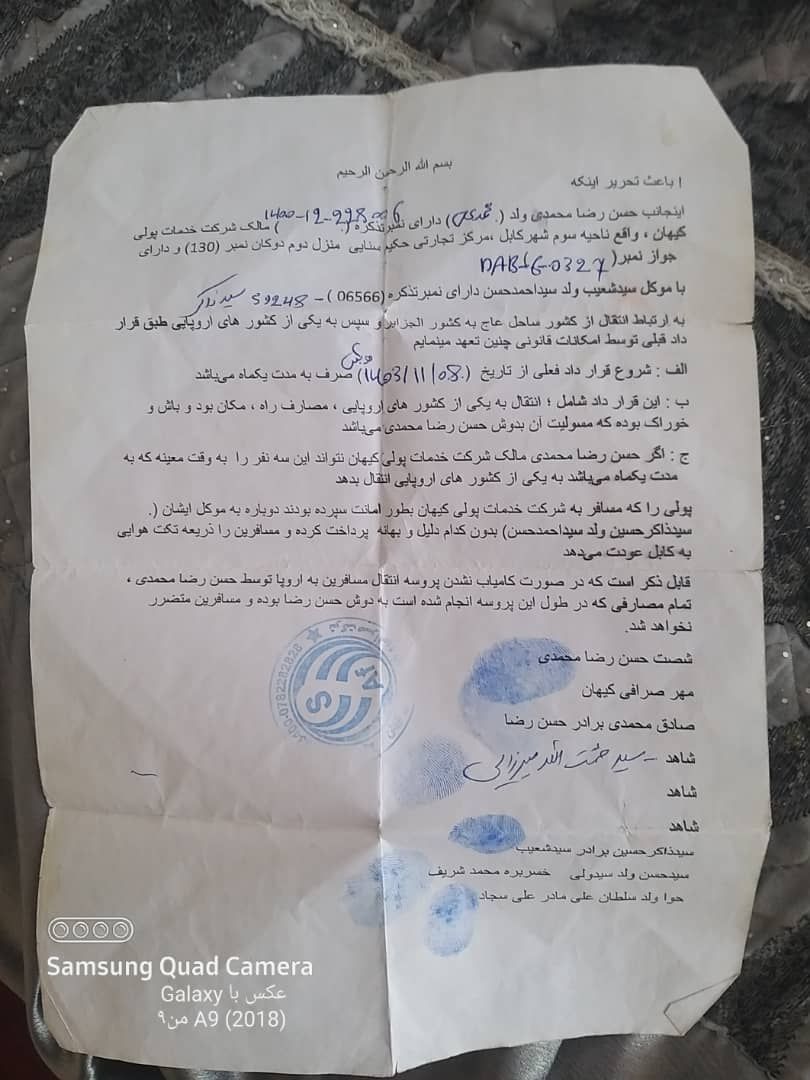 بسم الله الرحمن الرحیم
ا باعث تحریر اینکه
اینجانب حسن رضا محمدی ولد (. محمدی) دارای نمبرتذکره ( 1400-12-298 ) مالک شرکت خدمات پولی
کیهان ، واقع ناحیه سوم شهرکابل ،مرکز تجارتی حکیم سنایی منزل دوم دوکان نمبر (130) و دارای
جواز نمبر( DAB-0327
با موکل سیدشعیب ولد سیداحمدحسن دارای نمبرتذکره(06566 ) - 59248 سید ذاکر
به ارتباط انتقال از کشور ساحل عاج به کشور الجزایر و سپس به یکی از کشور های اروپایی طبق قرار
داد قبلی توسط امکانات قانونی چنین تعهد مینمایم
الف : شروع قرار داد فعلی از تاریخ (. 1403/11/08) صرف به مدت یکماه می‌باشد
ب : این قرار داد شامل ؛ انتقال به یکی از کشور های اروپایی ، مصارف راه ، مکان بود و باش و
خوراک بوده که مسولیت آن بدوش حسن رضا محمدی می‌باشد
ج : اگر حسن رضا محمدی مالک شرکت خدمات پولی کیهان نتواند این سه نفر را به وقت معینه که به
مدت یکماه می‌باشد به یکی از کشور های اروپایی انتقال بدهد
پولی را که مسافر به شرکت خدمات پولی کیهان بطور امانت سپرده بودند دوباره به موکل ایشان (.
سیدذاکرحسین ولد سیداحمدحسن) بدون کدام دلیل و بهانه پرداخت کرده و مسافرین را ذریعه تکت هوایی
به کابل عودت می‌دهد
قابل ذکر است که در صورت کامیاب نشدن پروسه انتقال مسافرین به اروپا توسط حسن رضا محمدی ،
تمام مصارفی که در طول این پروسه انجام شده است به دوش حسن رضا بوده و مسافرین متضرر
نخواهد شد.
شصت حسن رضا محمدی
مهر صرافی کیهان
صادق محمدی برادر حسن رضا
شاهد - سید حشمت الله میرزایی
شاهد
شاهد
سیدذاکرحسین برادر سیدشعیب
سیدحسن ولد سیدولی خسربره محمد شریف
حوا ولد سلطان علی مادر علی سجاد
0782282828
Samsung Quad Camera
عکس با Galaxy
A9 (2018) من۹